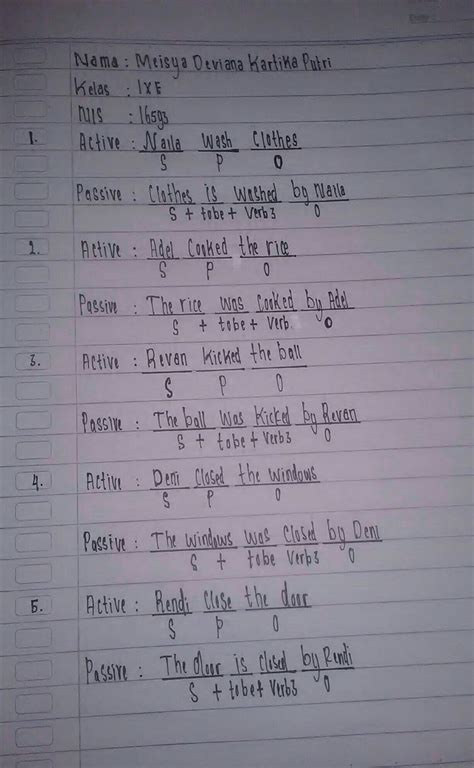 Nama : Meisya Deviana Kartika Putri
Kelas : IXE
NIS : 16593
1. Active : Naila Wash Clothes
S P O
Passive : Clothes is washed by Naila
S + tobe + Verb3 O
2. Active : Adel Cooked the rice
S P O
Passive : The rice was Cooked by Adel
S + tobe + Verb. O
3. Active : Revan Kicked the ball
S P O
Passive : The ball was Kicked by Revan
S + tobe + Verb3 O
4. Active : Deni Closed the windows
S P O
Passive : The windows was Closed by Deni
S + tobe Verb3 O
5. Active : Rendi Close the door
S P O
Passive : The door is closed by Rendi
S + tobe + Verb3 O